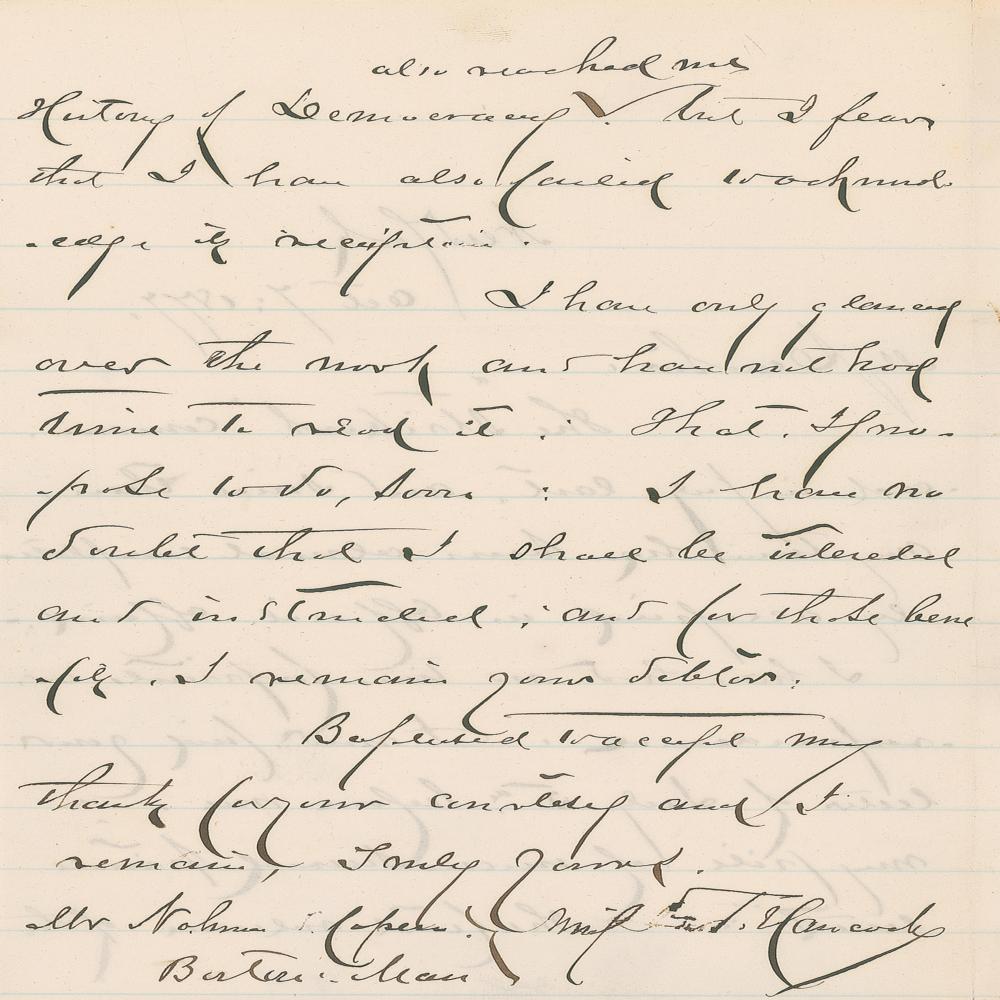 also reached me
History of Democracy. but I fear
that I have also failed to acknowl
-edge its reception.
I have only glanced
over the work and have not had
time to read it : That. I pro-
-pose to do, soon : I have no
doubt that I shall be interested
and instructed ; and for those bene
-fits. I remain your debtor.
Be pleased to accept my
thanks for your courtesy and I
remain, Truly Yours.
Mr Nahum Capen. Winf. S. Hancock
Boston. Mass